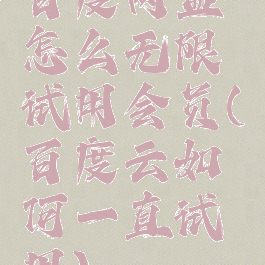 百度网盘
怎么无限
试用会员(
百度云如
何一直试
用)